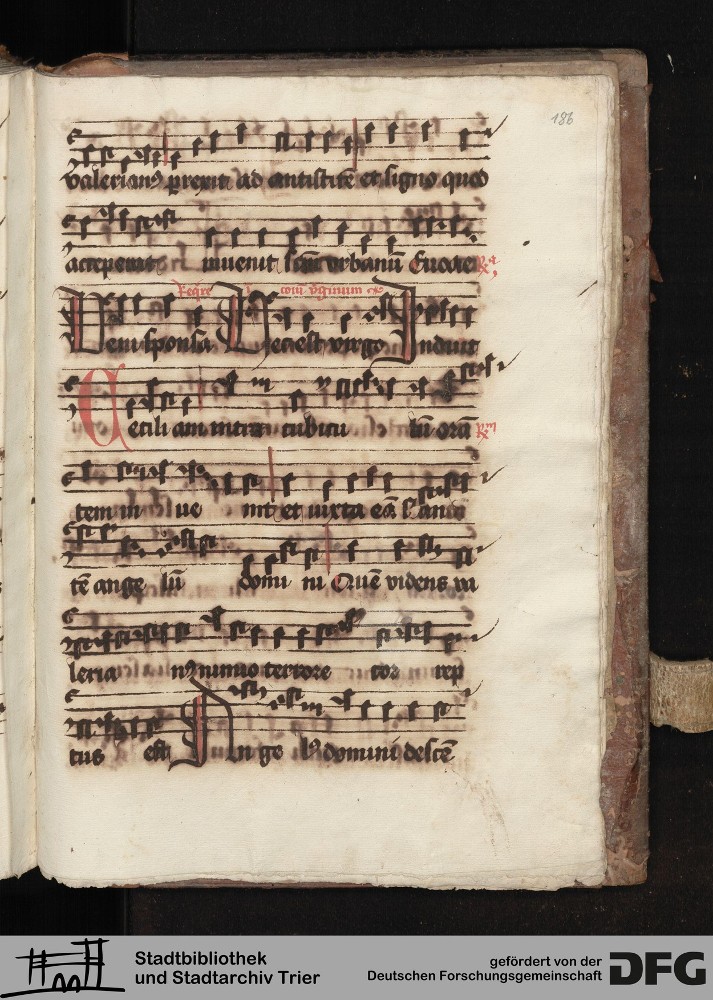 186
valerian⁹ prexit ad antistitē et signo quod
acceperat invenit scm̄ urbanū Euouae
Reqre coīu v̄ginum
Veni sponsa Hec est virgo Induit
Cecili am intra cubicu lū orā
tem in ve nit et iuxta eā stan
tē ange lū domi ni Quē videns va
leria n⁹ nimio terrore cor rep
tus est An ge l⁹ domini descē
Stadtbibliothek
und Stadtarchiv Trier
gefördert von der
Deutschen Forschungsgemeinschaft
DFG